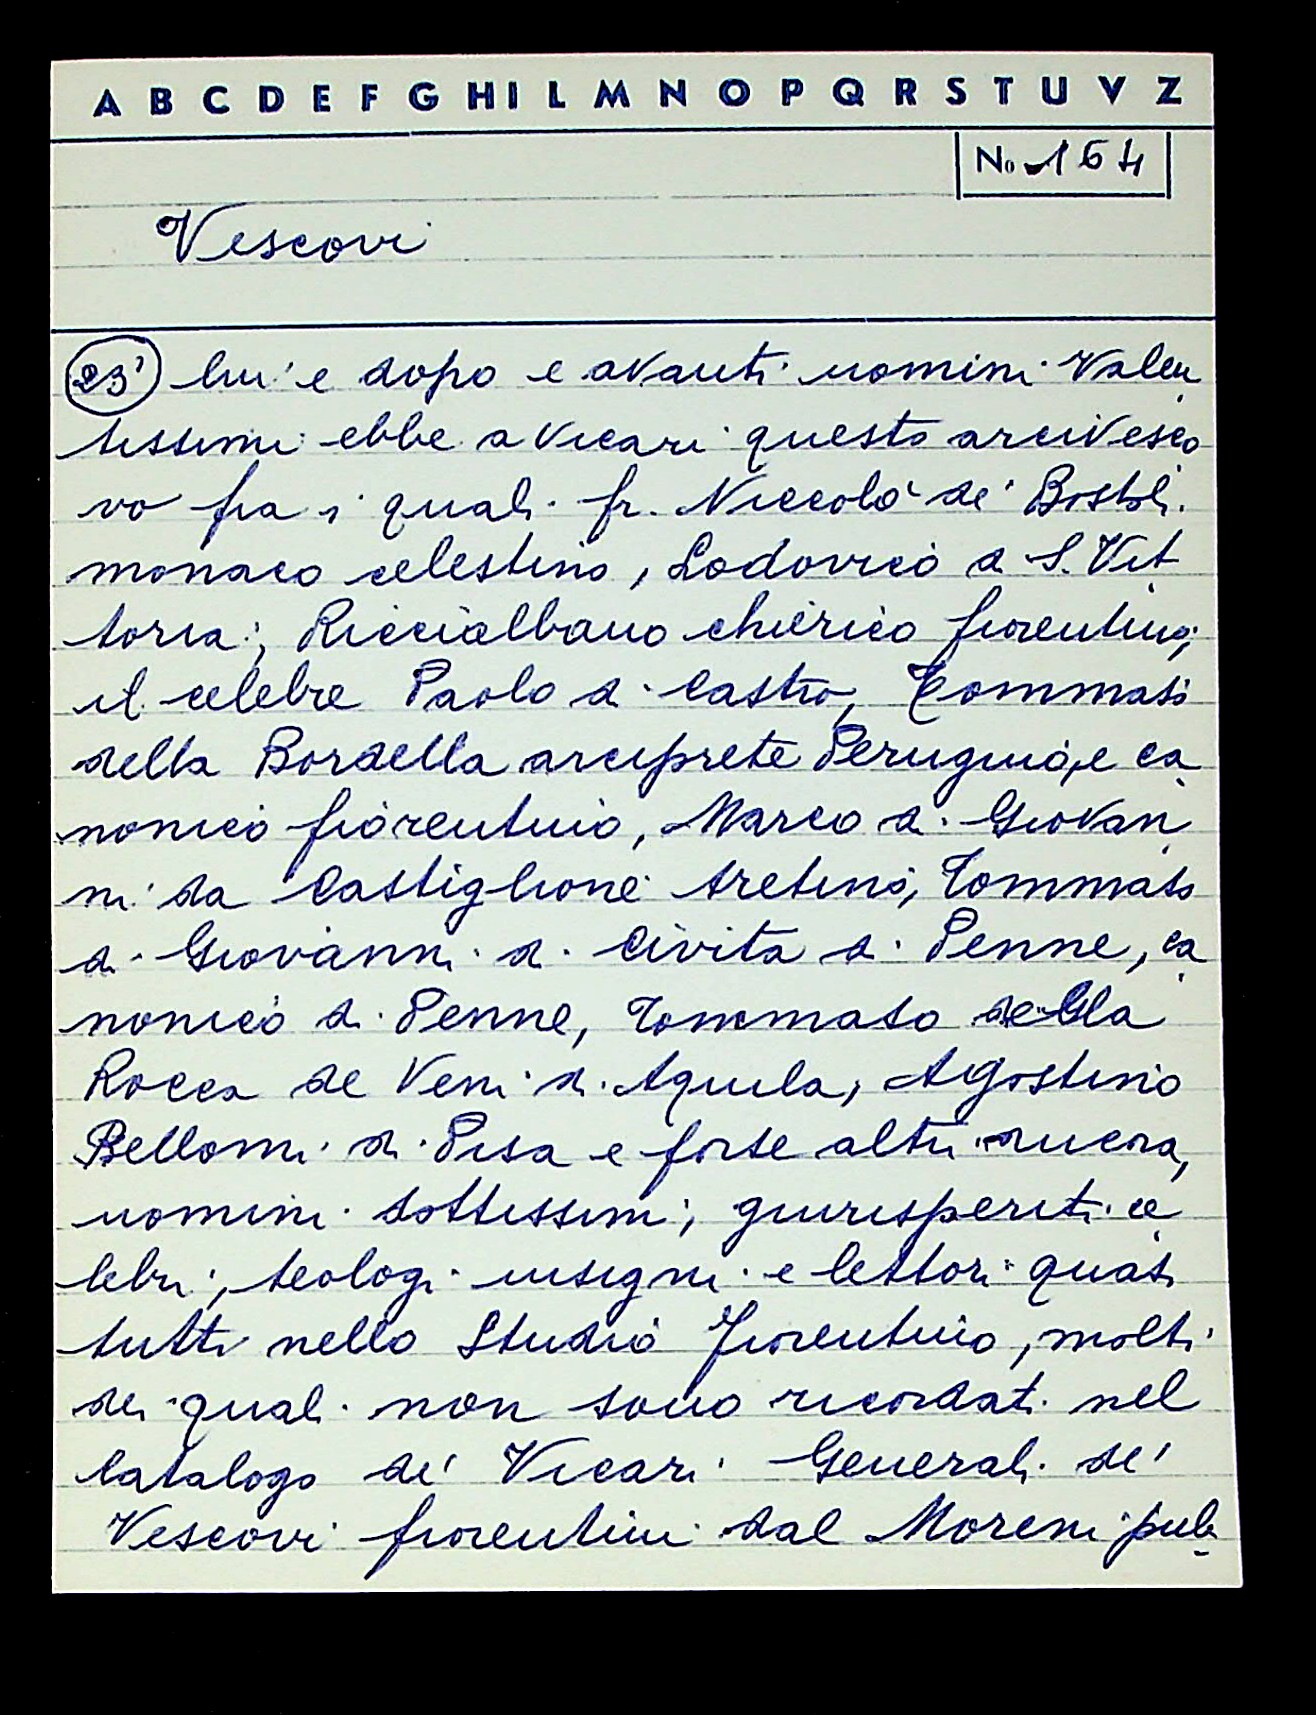 A B C D E F G H I L M N O P Q R S T U V Z
No 164
Vescovi
23' lui e dopo e avanti uomini valen
tissimi ebbe a vicari questo arcivesco
vo fra i quali fr. Niccolò de' Bostoli
monaco celestino, Lodovico di S. Vit
toria, Riccialbano chierico fiorentino,
il celebre Paolo di Castro, Tommaso
della Bordella arciprete Perugino, e ca
nonico fiorentino, Marco di Giovan
ni da Castiglione Aretino, Tommaso
di Giovanni di Civita di Penne, ca
nonico di Penne, Tommaso della
Rocca de Veni di Aquila, Agostino
Bellomi di Pisa e forse altri ancora,
uomini dottissimi, giurisperiti ce
lebri, teologi insigni e lettori quasi
tutti nello Studio Fiorentino, molti
dei quali non sono ricordati nel
Catalogo de' Vicari Generali de'
Vescovi fiorentini dal Moreni pub